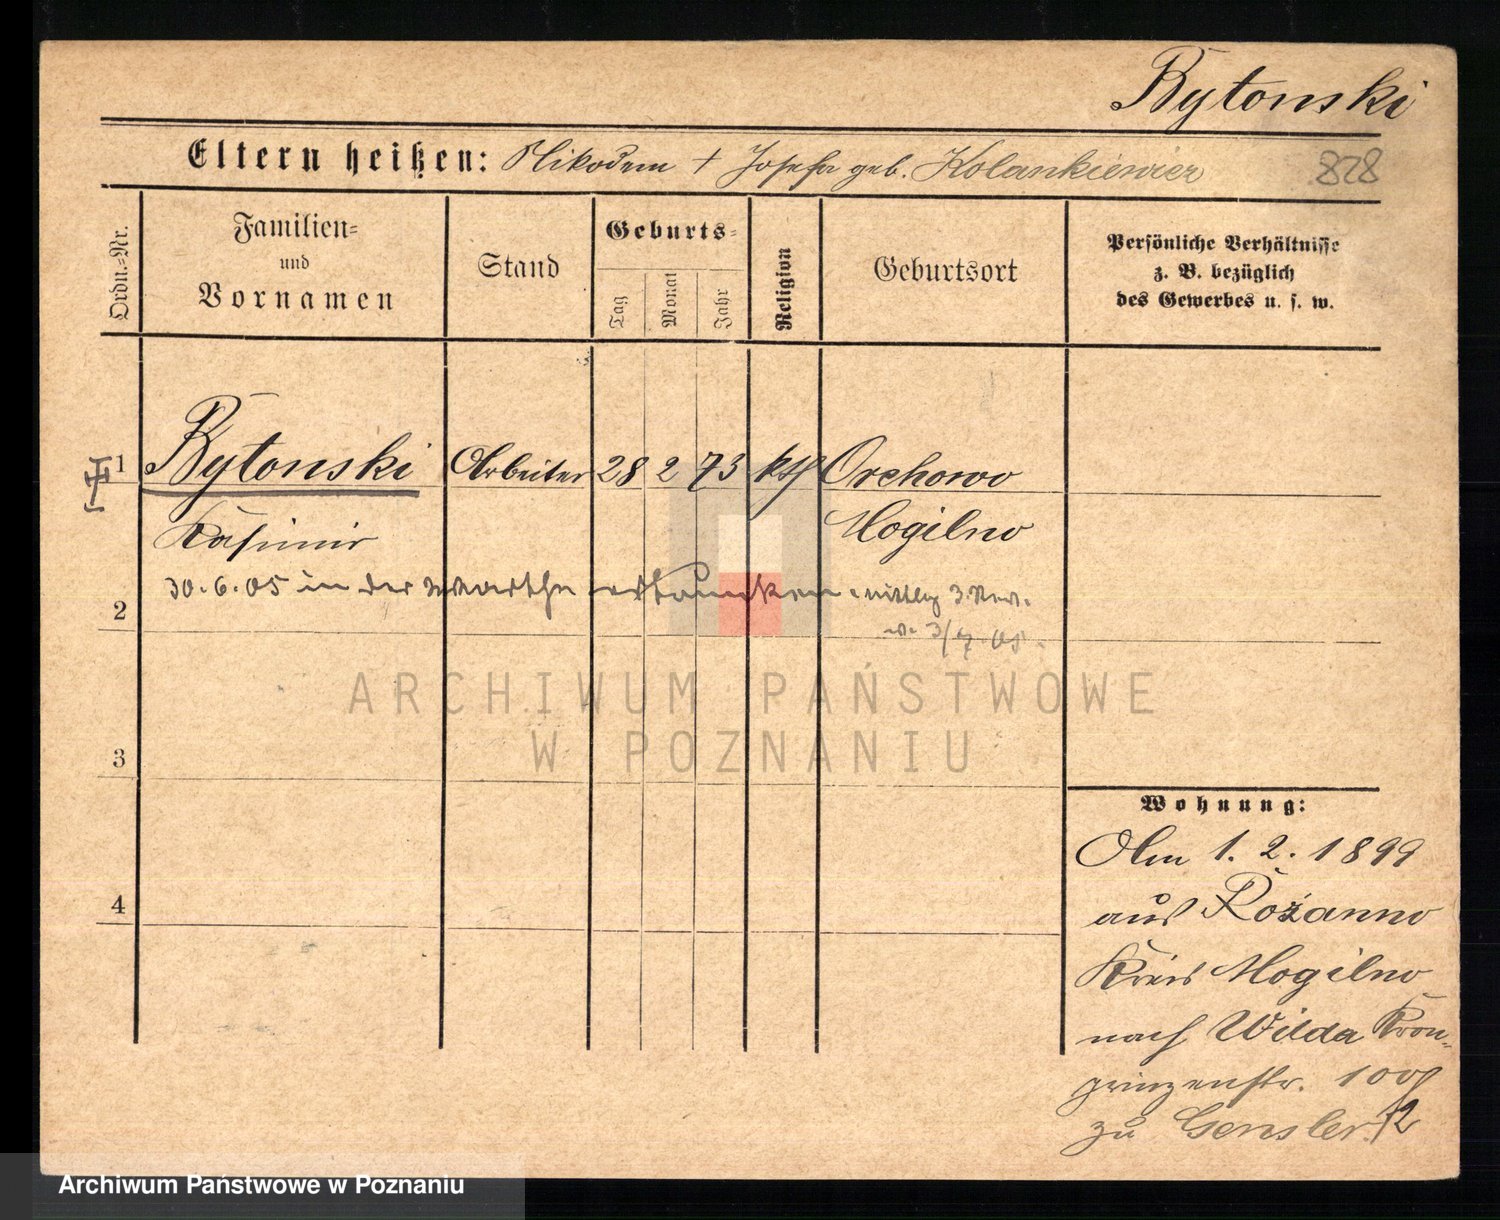 Bytonski
Eltern heißen: Nikodem + Josefa geb. Kolankiewicz
828
Ordn.=Nr.
Familien=
und
Vornamen
Stand
Geburts=
Tag
Monat
Jahr
Religion
Geburtsort
Persönliche Verhältnisse
z. B. bezüglich
des Gewerbes u. s. w.
1
Bytonski Arbeiter 28 2 73 kth Orchowo
Kasimir Mogilno
30.6.05 in der Warthe ertrunken
v. 3/7.05.
2
3
4
ARCHIWUM PAŃSTWOWE
W POZNANIU
Wohnung:
Am 1.2.1899
aus Rożanno
Kreis Mogilno
nach Wilda Kron-
prinzenstr. 100
zu Gensler.
Archiwum Państwowe w Poznaniu